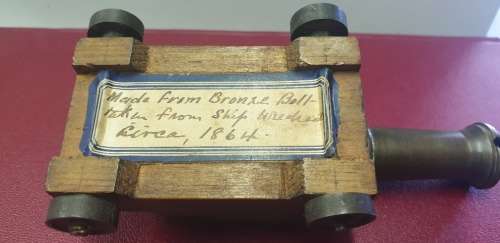 Made from Bronze Bolt
taken from Ship Wrecked
Circa, 1864.